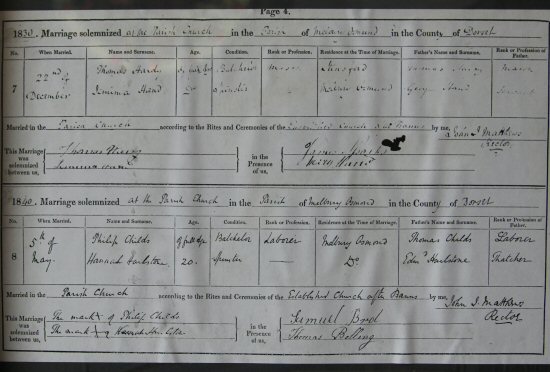 Page 4.
1839. Marriage solemnized at the Parish Church in the Parish of Melbury Osmond in the County of Dorset
No. When Married. Name and Surname. Age. Condition. Rank or Profession. Residence at the Time of Marriage. Father's Name and Surname. Rank or Profession of Father.
22nd of Thomas Hardy of full age Batchelor Mason Stinsford Thomas Hardy Mason
7
December Jemima Hand Do Spinster Melbury Osmond George Hand Servant
Married in the Parish Church according to the Rites and Ceremonies of the Established Church by me,
This Marriage was solemnized between us, Thomas Hardy in the Presence of us, James Sparks
Jemima Hand Mary Hand
John J. Matthews Rector
1840. Marriage solemnized at the Parish Church in the Parish of Melbury Osmond in the County of Dorset
No. When Married. Name and Surname. Age. Condition. Rank or Profession. Residence at the Time of Marriage. Father's Name and Surname. Rank or Profession of Father.
5th of Philip Childs of full age Batchelor Laborer Melbury Osmond Thomas Childs Laborer
8
May Hannah Hailstone 20. Spinster — Do Edwd Hailstone Thatcher
Married in the Parish Church according to the Rites and Ceremonies of the Established Church after Banns by me, John J. Matthews
Rector
This Marriage was solemnized between us, The mark X of Philip Childs in the Presence of us, Samuel
The mark X of Hannah Thomas Belling